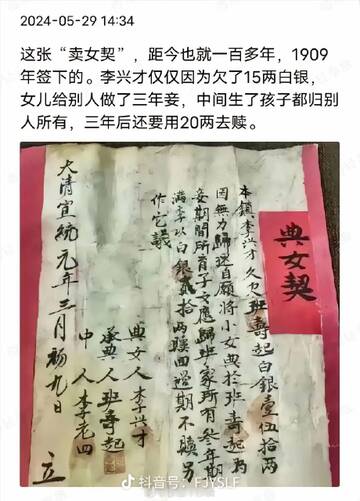 2024-05-29 14:34
这张“卖女契”，距今也就一百多年，1909
年签下的。李兴才仅仅因为欠了15两白银，
女儿给别人做了三年妾，中间生了孩子都归别
人所有，三年后还要用20两去赎。
典女契
本鎮李兴才久欠班壽起白银壹伍拾两
因無力歸還自願将小女典於班壽起為
妾期間所育子女應歸班家所有叁年期
满李以白银贰拾两赎回過期不赎另
作它議
典女人李兴才
承典人班壽起
中人李老四
大清宣統元年三月初九日 立
抖音号：FJYSLF